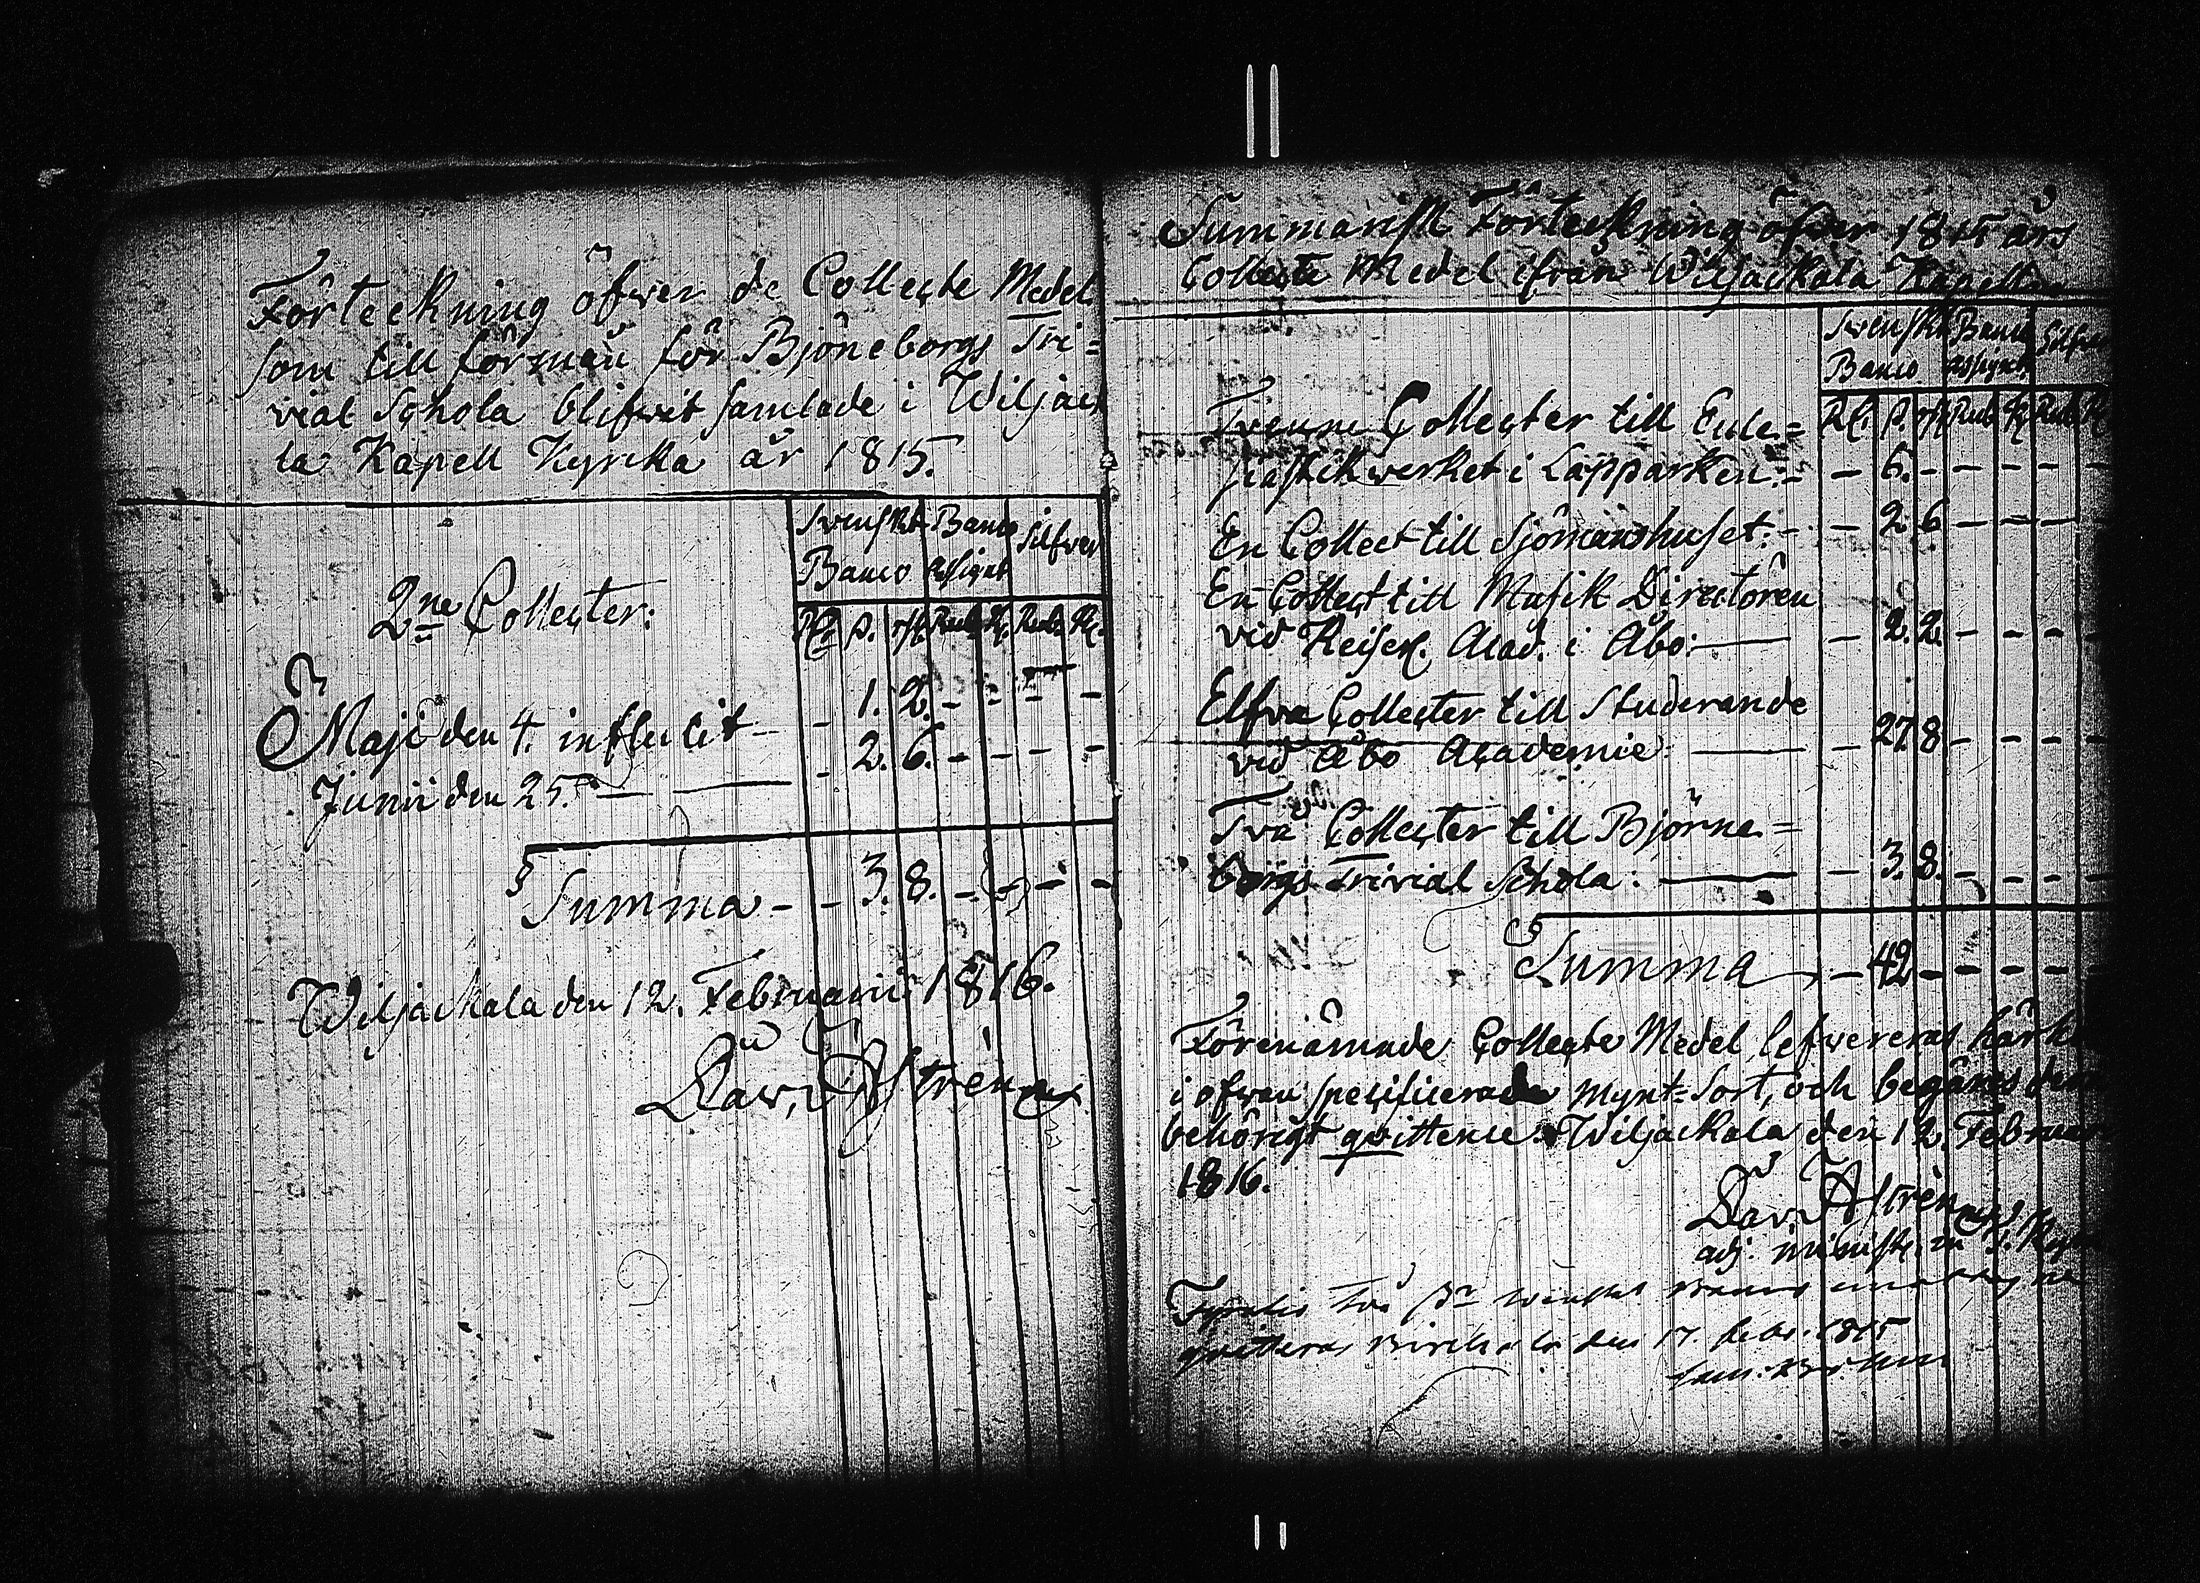 Förteckning öfwer de Collecte Medel
som till förmån för Björneborgs Tri=
vial Schola blifwit samlade i Wiljack
la Kapell Kyrcka år 1815.
Swenskt Banco Silfwer
Banco assignat
2ne Collecter:
RD. s. r/st. Rub. K. Rub. K.
Maji den 4. influtit - - 1. 2. - - - -
Junii den 25. - - 2. 6. - - - -
Summa - - 3. 8. - - - -
Wiljackala den 12. Februarii 1816.
Dav. Astrén
Summarisk Förteckning öfwer 1815 års
Collecte Medel ifrån Wiljackala Kapell
Swenskt Banco Silfwer
Banco assignat
RD. s. r/st Rub K Rub K
Trenne Collecter till Eccle=
siastikwerket i Lappmarken: - - 6. - - - - -
En Collect till Sjömanshuset: - - 2. 6 - - - -
En Collect till Musik Directören
vid Keiserl. Acad. i Åbo: - 2. 2. - - - -
Elfva Collecter till Studerande
vid Åbo Academie: - 27 8 - - - -
Två Collecter till Björne=
borgs Trivial Schola: - 3. 8. - - - -
Summa - 42 - - - - -
Förenämnde Collecte Medel lefwereras
i ofvan specificerade mynt=sort, och begäres
behörigt qvittence. Wiljackala den 12. Februari
1816.
Dav. Astrén
adj. minist.
Två
qvitteras Birckala den 17. Febr. 1815